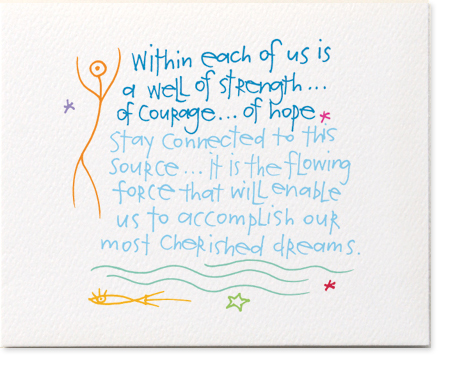 Within each of us is
a well of strength...
of courage... of hope
Stay connected to this
source... it is the flowing
force that will enable
us to accomplish our
most cherished dreams.